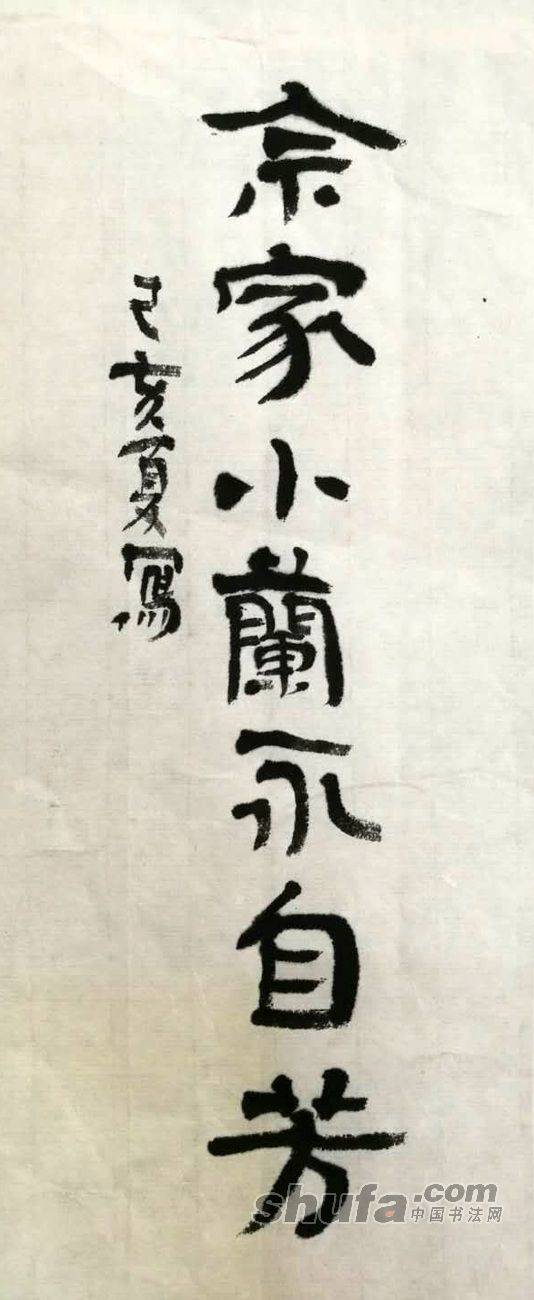 佘家小蘭永自芳
己亥夏寫
shufa.com
中国书法网